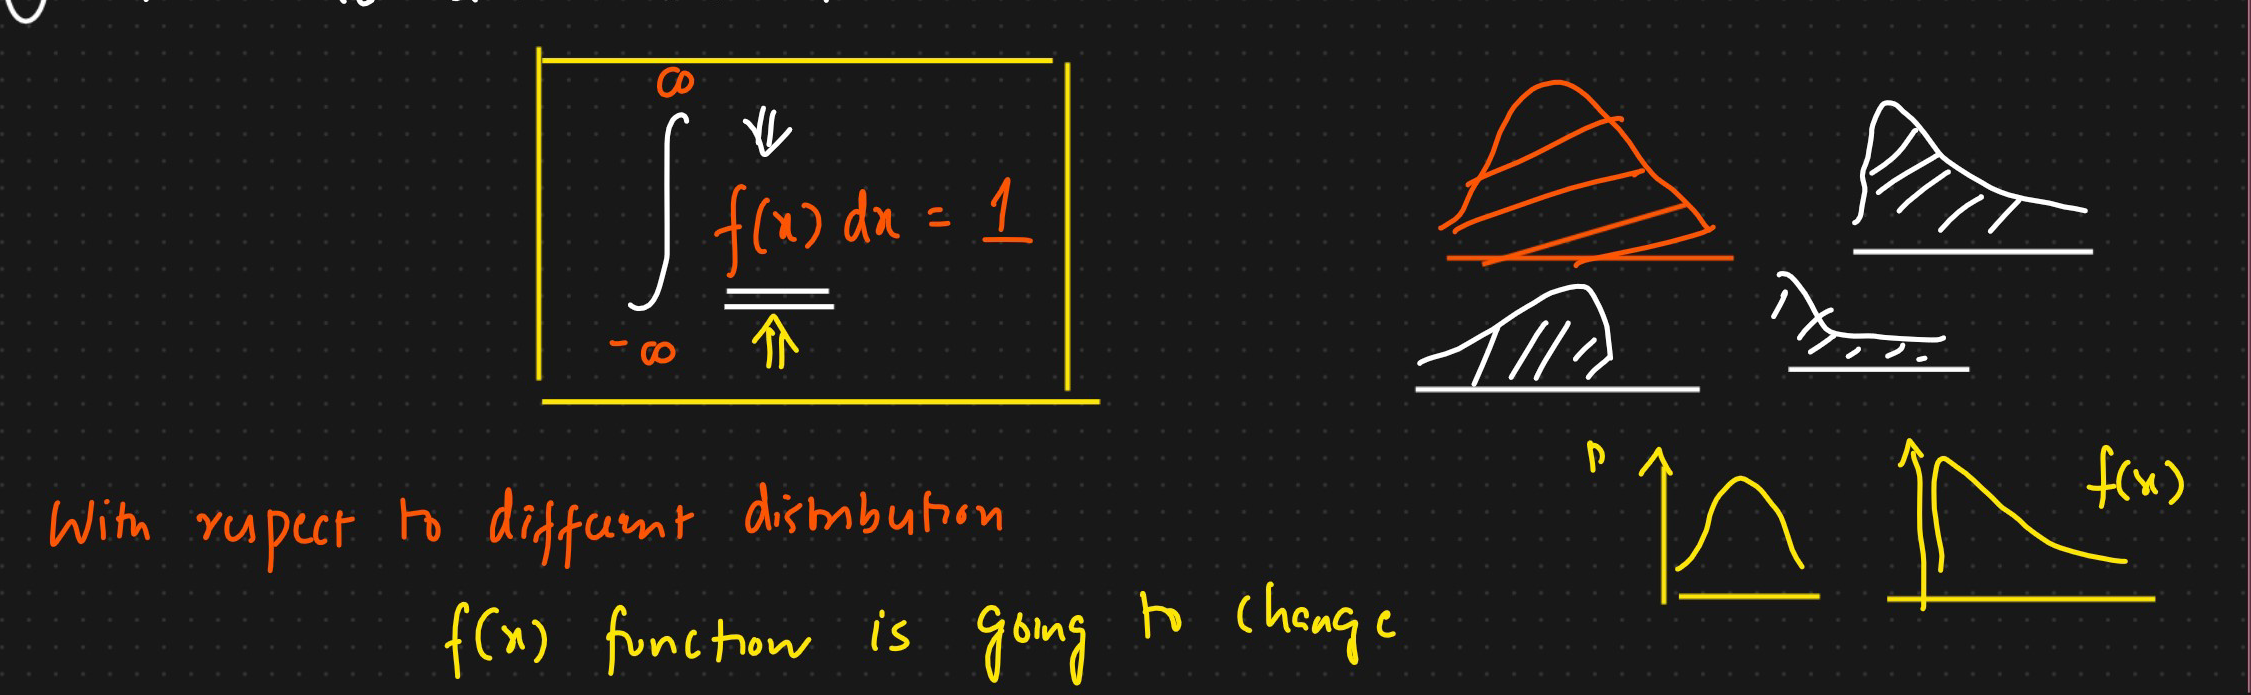 ∞
∫ f(x) dx = 1
-∞
P
f(x)
With respect to different distribution
f(x) function is going to change